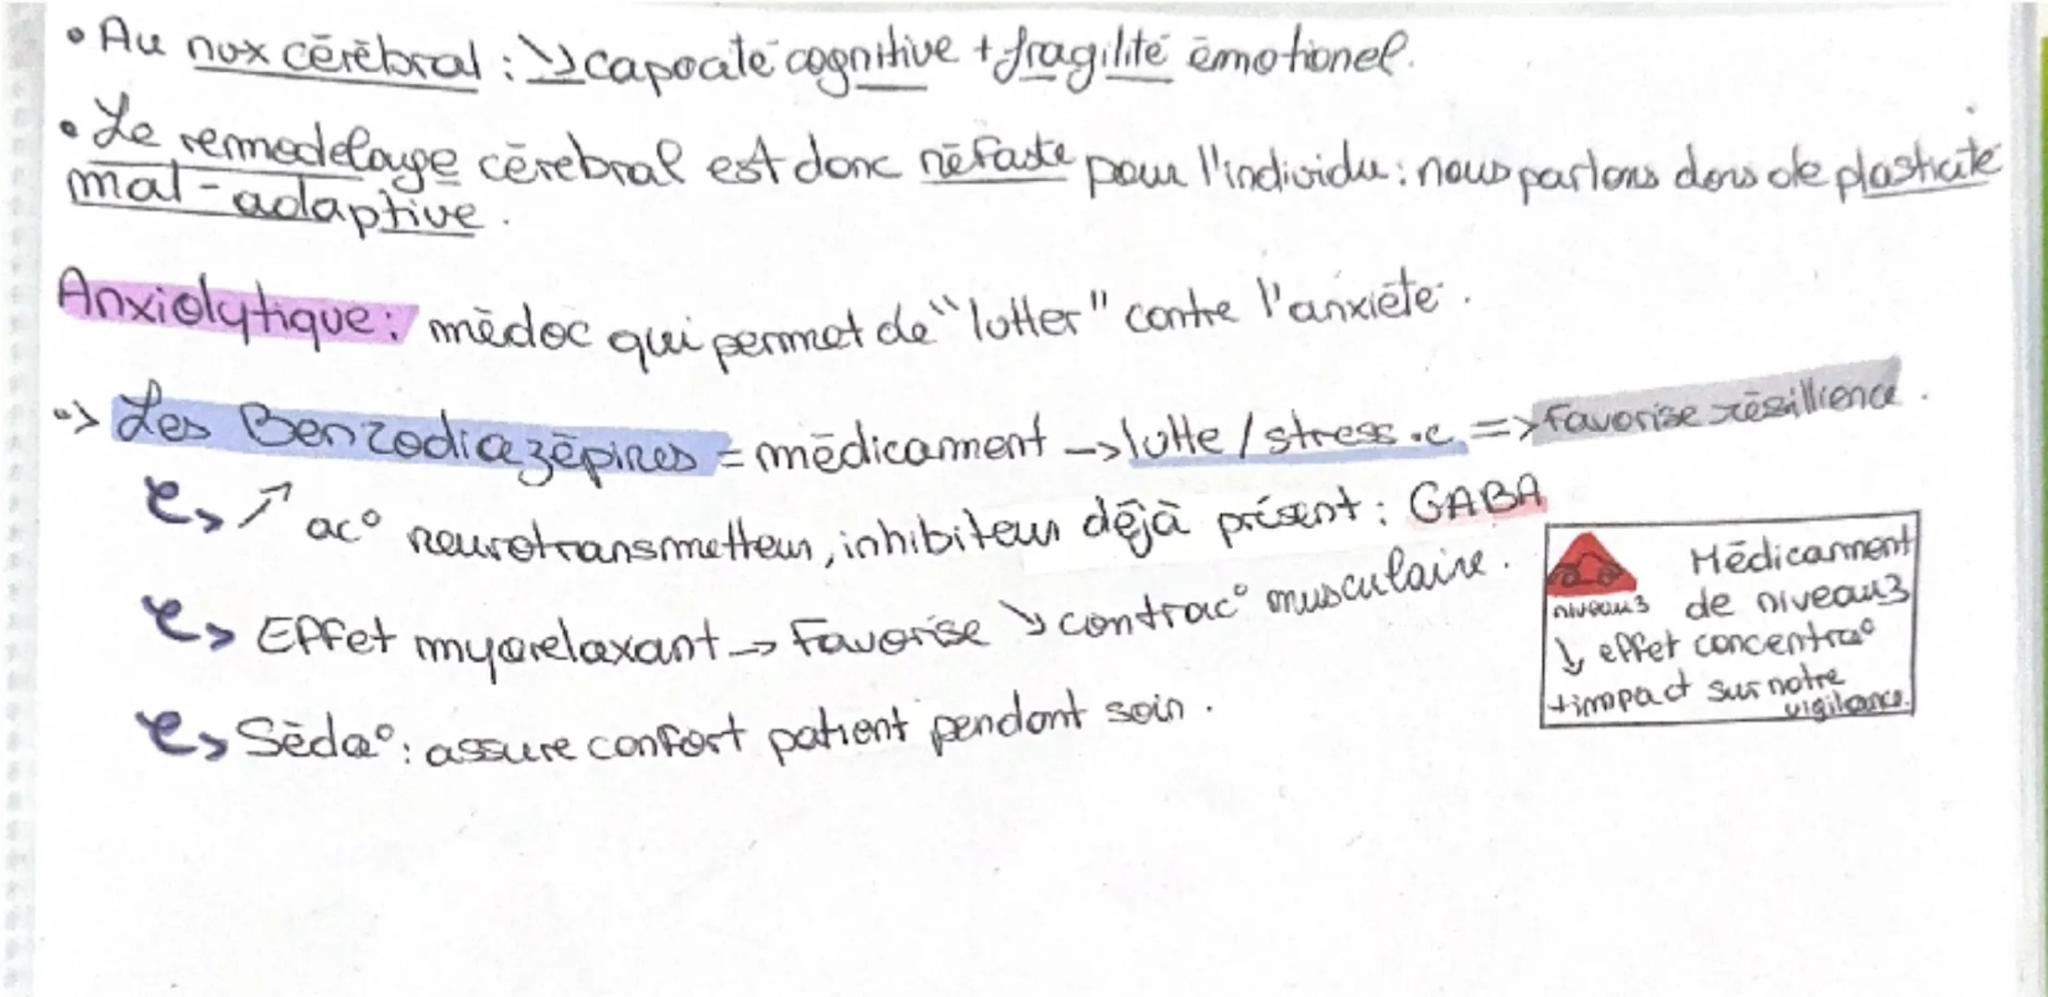 • Au nvx cérébral : ↘ capacité cognitive + fragilité émotionel.
• Le remodelage cérébral est donc néfaste pour l'individu : nous parlons dons de plasticité
mal-adaptive.
Anxiolytique : médoc qui permet de "lutter" contre l'anxiété.
=> Les Benzodiazépines = médicament → lutte / stress .c => Favorise résillience.
↗ ac° neurotransmetteur, inhibiteur déjà présent : GABA
Effet myorelaxant → Favorise ↘ contrac° musculaire.
Séda° : assure confort patient pendant soin.
niveau 3
Médicament
de niveau 3
↘ effet concentra°
+ impact sur notre
vigilance.